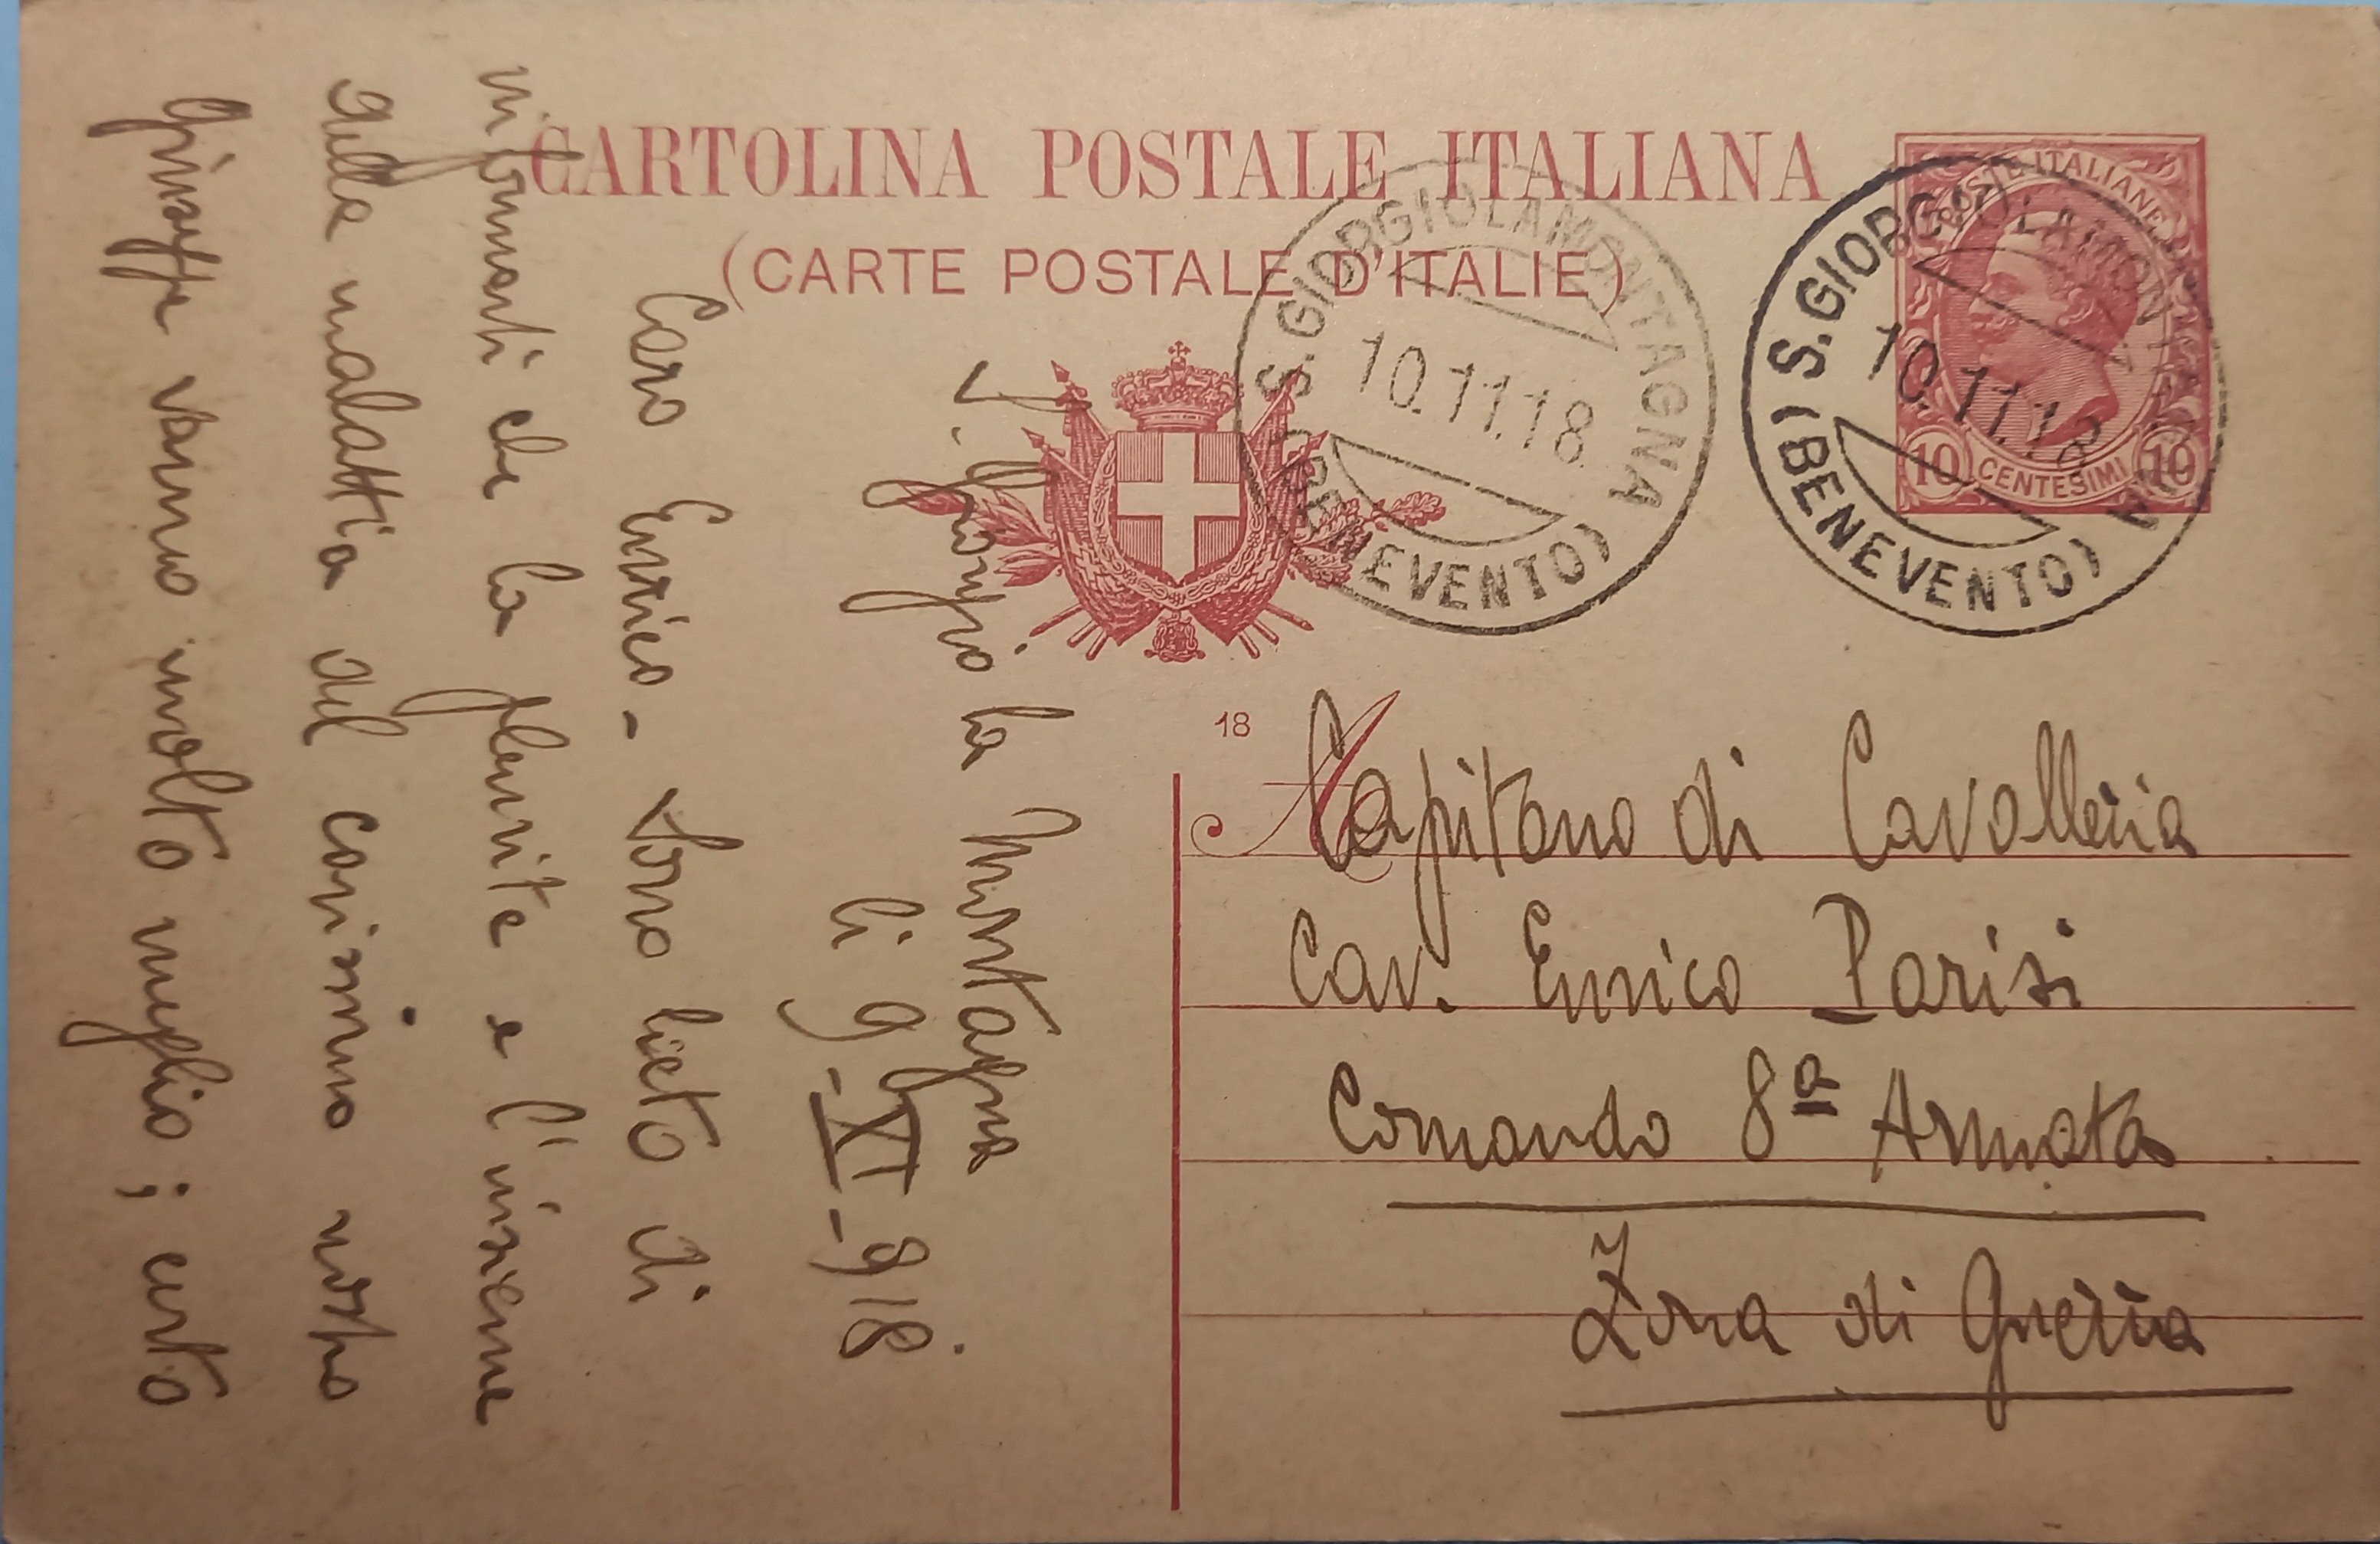 CARTOLINA POSTALE ITALIANA
(CARTE POSTALE D'ITALIE)
POSTE ITALIANE
10 CENTESIMI 10
S. GIORGIO LA MONTAGNA
10.11.18
(BENEVENTO)
S. GIORGIO LA MONTAGNA
10.11.18
(BENEVENTO)
18
A
Capitano di Cavalleria
Cav. Enrico Parisi
Comando 8ª Armata
Zona di Guerra
S. Giorgio la Montagna
li 9-XI-918.
Caro Enrico - Sono lieto di
informarti che la pleurite e l'insieme
della malattia del carissimo nostro
Giuseppe vanno molto meglio; certo